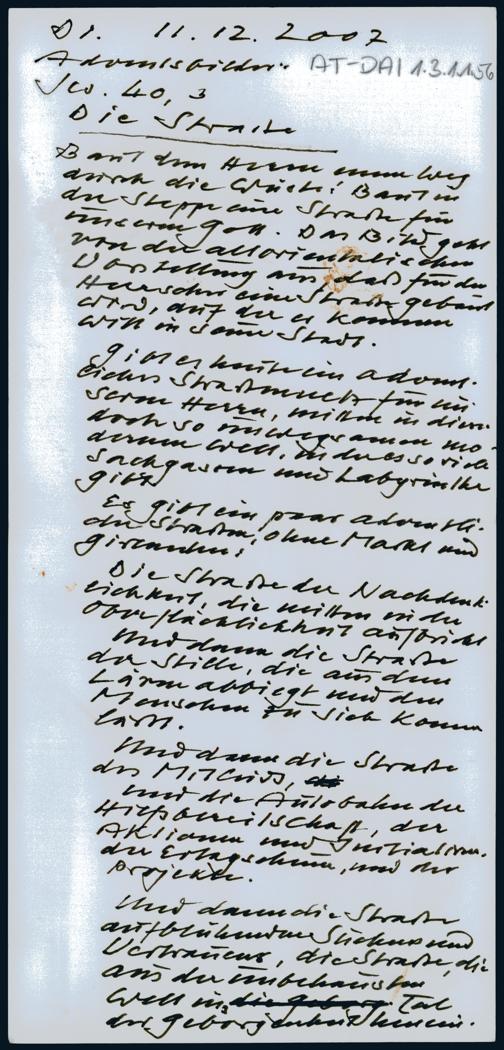 Di. 11.12.2007
Adventsbilder. AT-DAI 1.3.1.1.56
Jes. 40, 3
Die Straße
Baut dem Herrn einen Weg
durch die Wüste! Baut in
der Steppe eine Straße für
unseren Gott. Das Bild geht
von der altorientalischen
Vorstellung aus, daß für den
Herrscher eine Straße gebaut
wird, auf der er kommen
will in seine Stadt.
Gibt es heute ein advent-
liches Straßennetz für un-
seren Herrn, mitten in dieser
doch so unwegsamen mo-
dernen Welt, in der es so viele
Sachgassen und Labyrinthe
gibt?
Es gibt ein paar adventli-
che Straßen, ohne Markt und
Girlanden:
Die Straße der Nachdenk-
lichkeit, die mitten in der
Oberflächlichkeit aufbricht
Und dann die Straße
der Stille, die aus dem
Lärm abbiegt und den
Menschen zu sich kommen
läßt.
Und dann die Straße
des Mitleids,
und die Autobahn der
Hilfsbereitschaft, der
Aktionen und Initiativen.
der Erlagscheine, und der
Projekte.
Und dann die Straße
aufblühenden Suchens und
Vertrauens, die Straße, die
aus der unbehausten
Welt ins Tal
der Geborgenheit hinein.